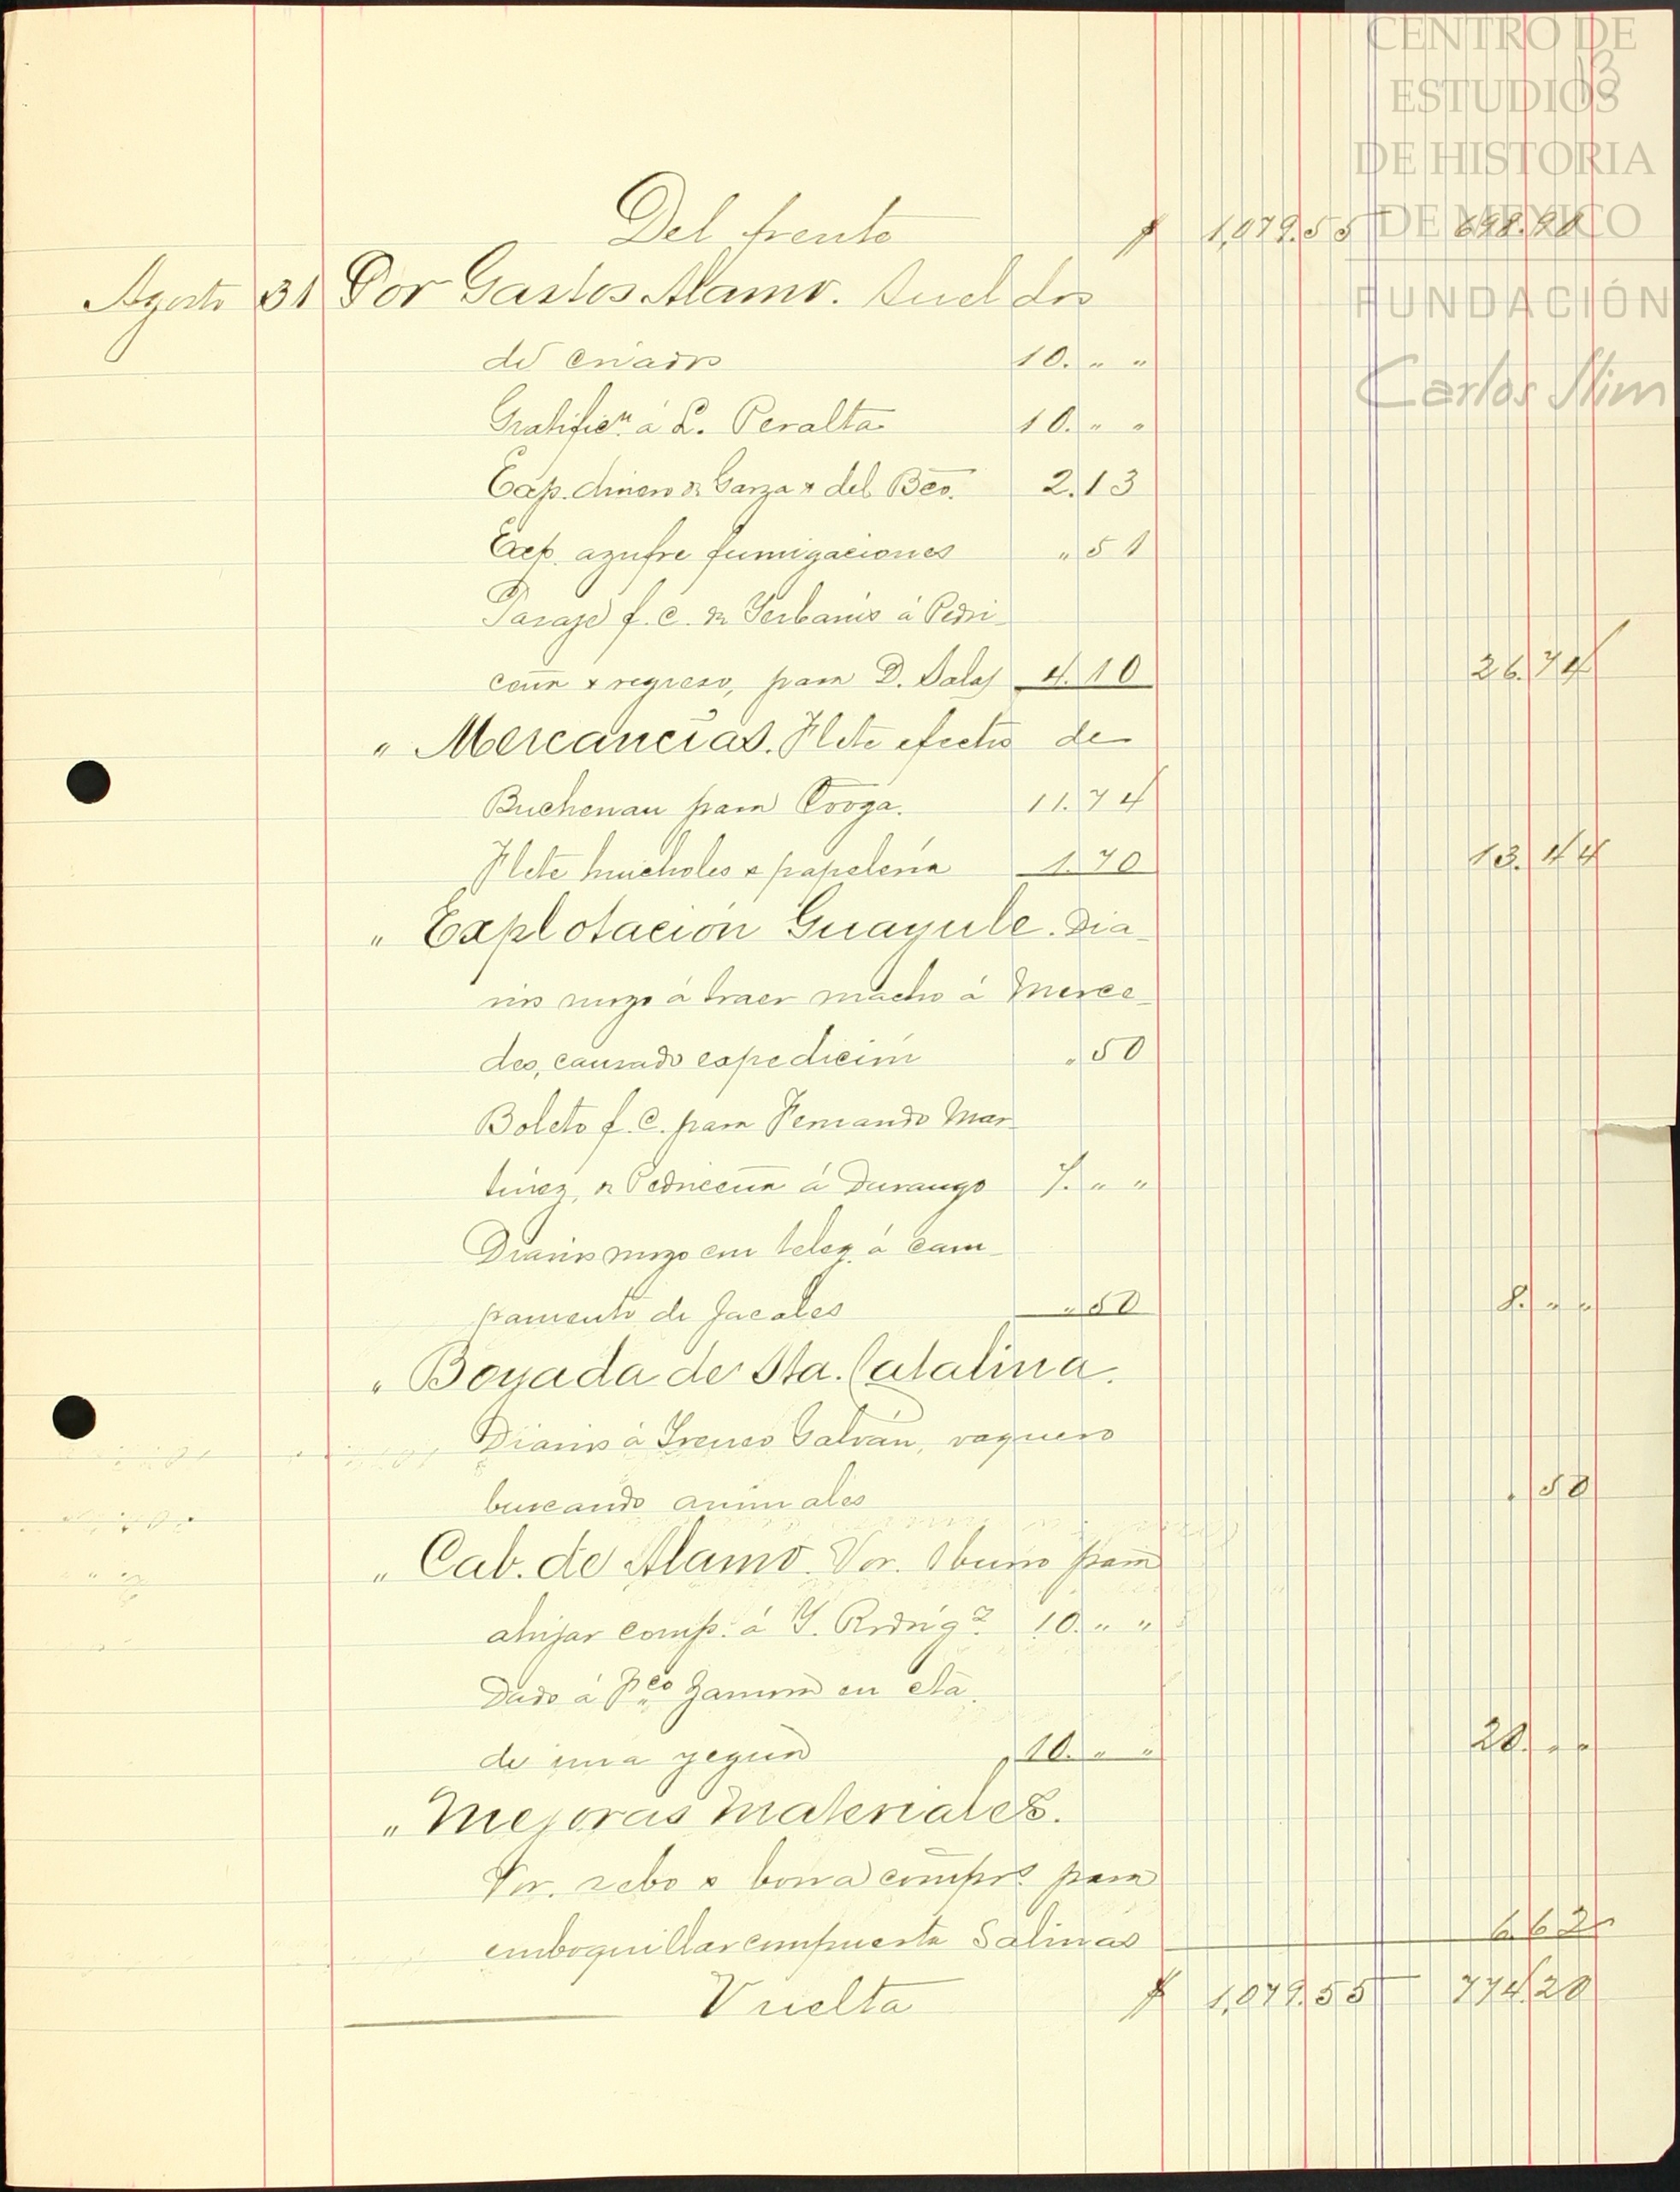 CENTRO DE
ESTUDIOS
DE HISTORIA
DE MEXICO
FUNDACIÓN
Carlos Slim
13
Del frente $ 1,079.55 698.90
Agosto 31 Por Gastos Alamo. Sueldos
de criados 10. " "
Gratificn. á L. Peralta 10. " "
Exp. dinero de Garza y del Bco. 2.13
Exp. azufre fumigaciones " 51
Pasaje f. c. de Yerbanis á Pedri-
ceña y regreso, para D. Salas 4.10 26.74
" Mercancías. Flete efectos de
Buchenau para 11.74
Flete huicholes y papelería 1.70 13.44
" Explotación Guayule. Dia-
rios mozo á traer macho á Merce-
des, cansado expedición " 50
Boleto f. c. para Fernando Mar-
tínez, de Pedriceña á Durango 7. " "
Diarios mozo con teleg. á cam-
pamento de Jacales " 50 8. " "
" Boyada de Sta. Catalina.
Diarios á Ireneo Galván, vaquero
buscando animales . 50
" Cab. de Alamo. Vor. 1 burro para
ahijar comp. á Y. Rodrigz 10. " "
Dado á Fco Zamora en cta.
de una yegua 10. " " 20. " "
" Mejoras Materiales.
Vor. sebo y borra comprs. para
emboquillar compuerta Salinas 6.62
Vuelta $ 1,079.55 774.20